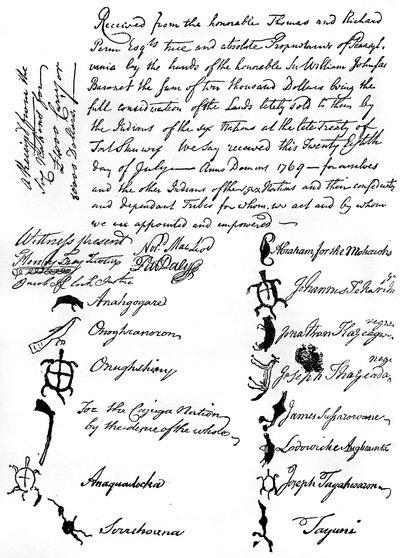 Received from the honorable Thomas and Richard
Penn Esqrs true and absolute Proprietaries of Pensyl
vania by the hands of the honorable Sir William Johnson
Baronet the Sum of ten thousand Dollars being the
full consideration of the Lands lately sold to them by
the Indians of the Six Nations at the late Treaty of
Fort Stanwix We say received this Twenty Eighth
day of July — Anno Domini 1769 — for ourselves
and the other Indians of the Six Nations and their confederates
and dependant Tribes for whom we act and by whom
we are appointed and empowered —
A Receipt from the
Six Nations for
10000 Dollars
Witness present
Norn. MacLeod
Abraham for the Mohawks
Johannes
Anahgogare
Jonathan
Onoghranoron
Joseph
Onughshiny
James
For the Cajuga Nation
by the desire of the whole
Lodowicke
Anaquadecka
Joseph
Serrehoana
Tayuni